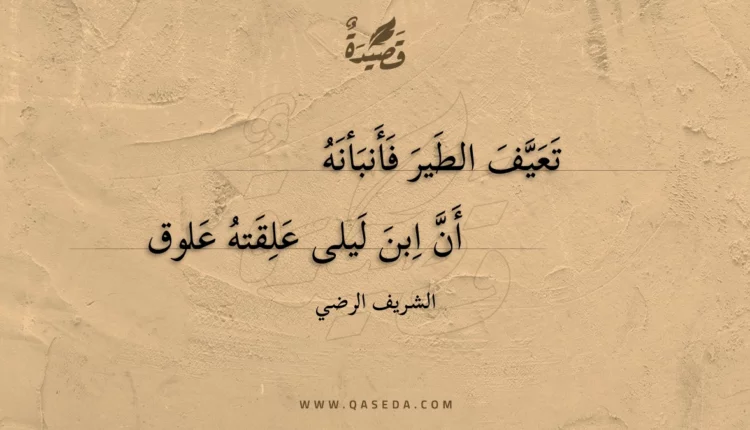 قَصِيدَةٌ
تَعَيَّفَ الطَيرَ فَأَنبَأنَهُ
أَنَّ اِبنَ لَيلى عَلِقَتهُ عَلوق
الشريف الرضي
WWW.QASEDA.COM